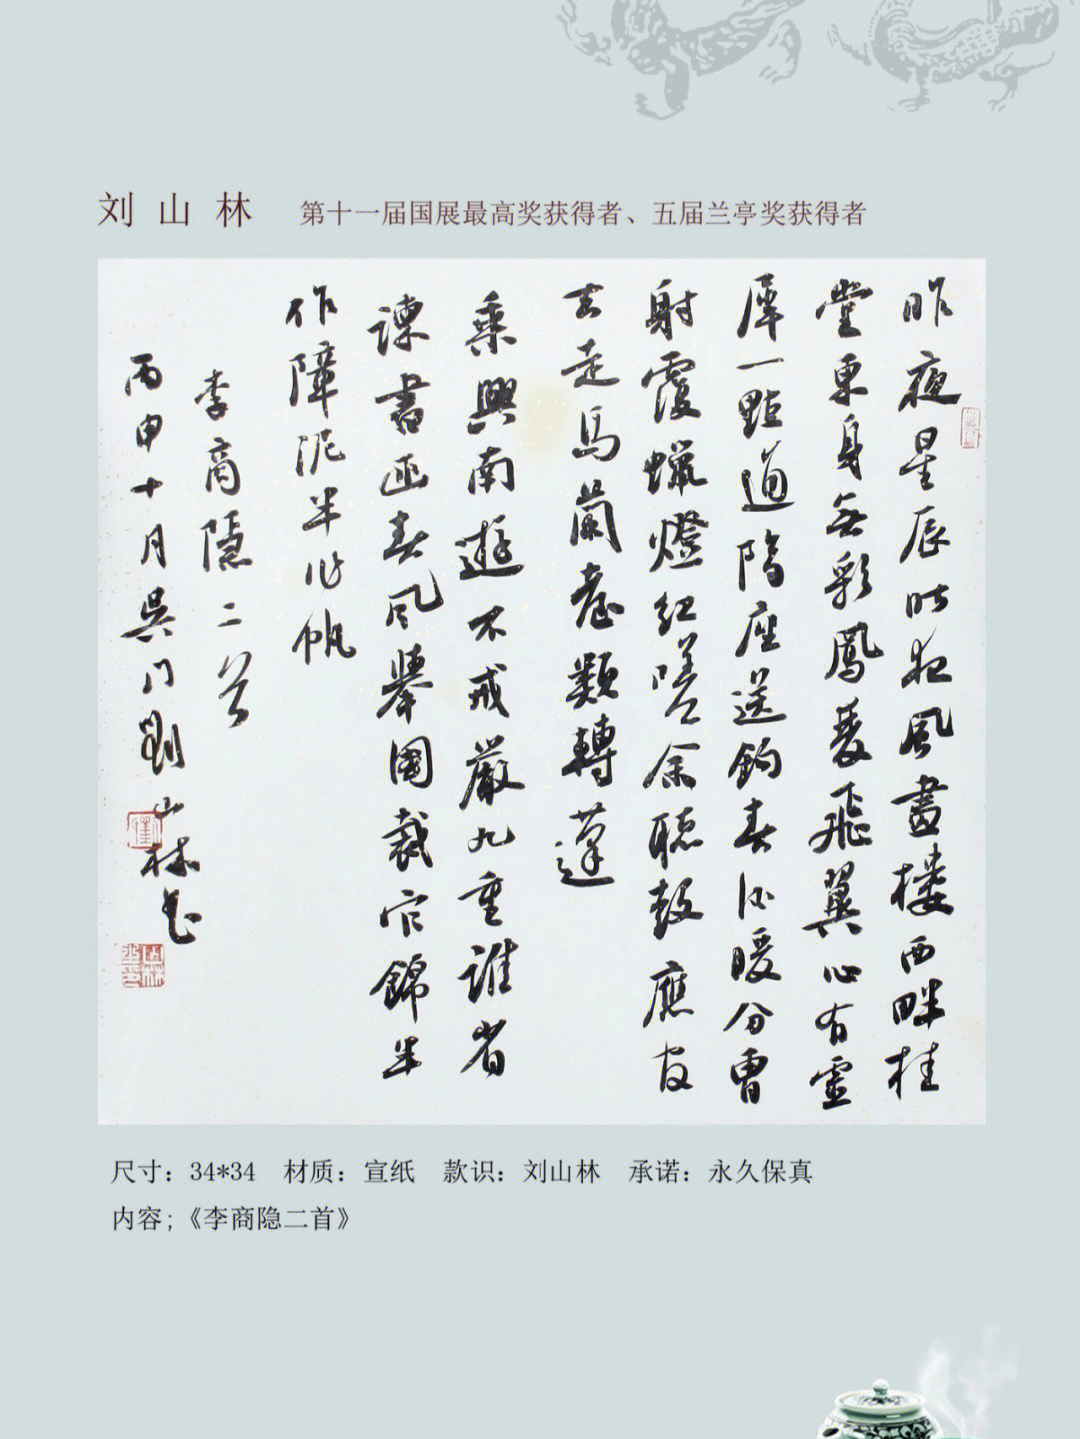 刘山林
第十一届国展最高奖获得者、五届兰亭奖获得者
昨夜星辰昨夜風畫樓西畔桂
堂東身無彩鳳雙飛翼心有靈
犀一點通隔座送鉤春酒暖分曹
射覆蠟燈紅嗟余聽鼓應官
去走馬蘭臺類轉蓬
乘興南遊不戒嚴九重誰省
諫書函春風舉國裁宮錦半
作障泥半作帆
李商隱二首
丙申十月吳門劉山林書
尺寸：34*34 材质：宣纸 款识：刘山林 承诺：永久保真
内容;《李商隐二首》